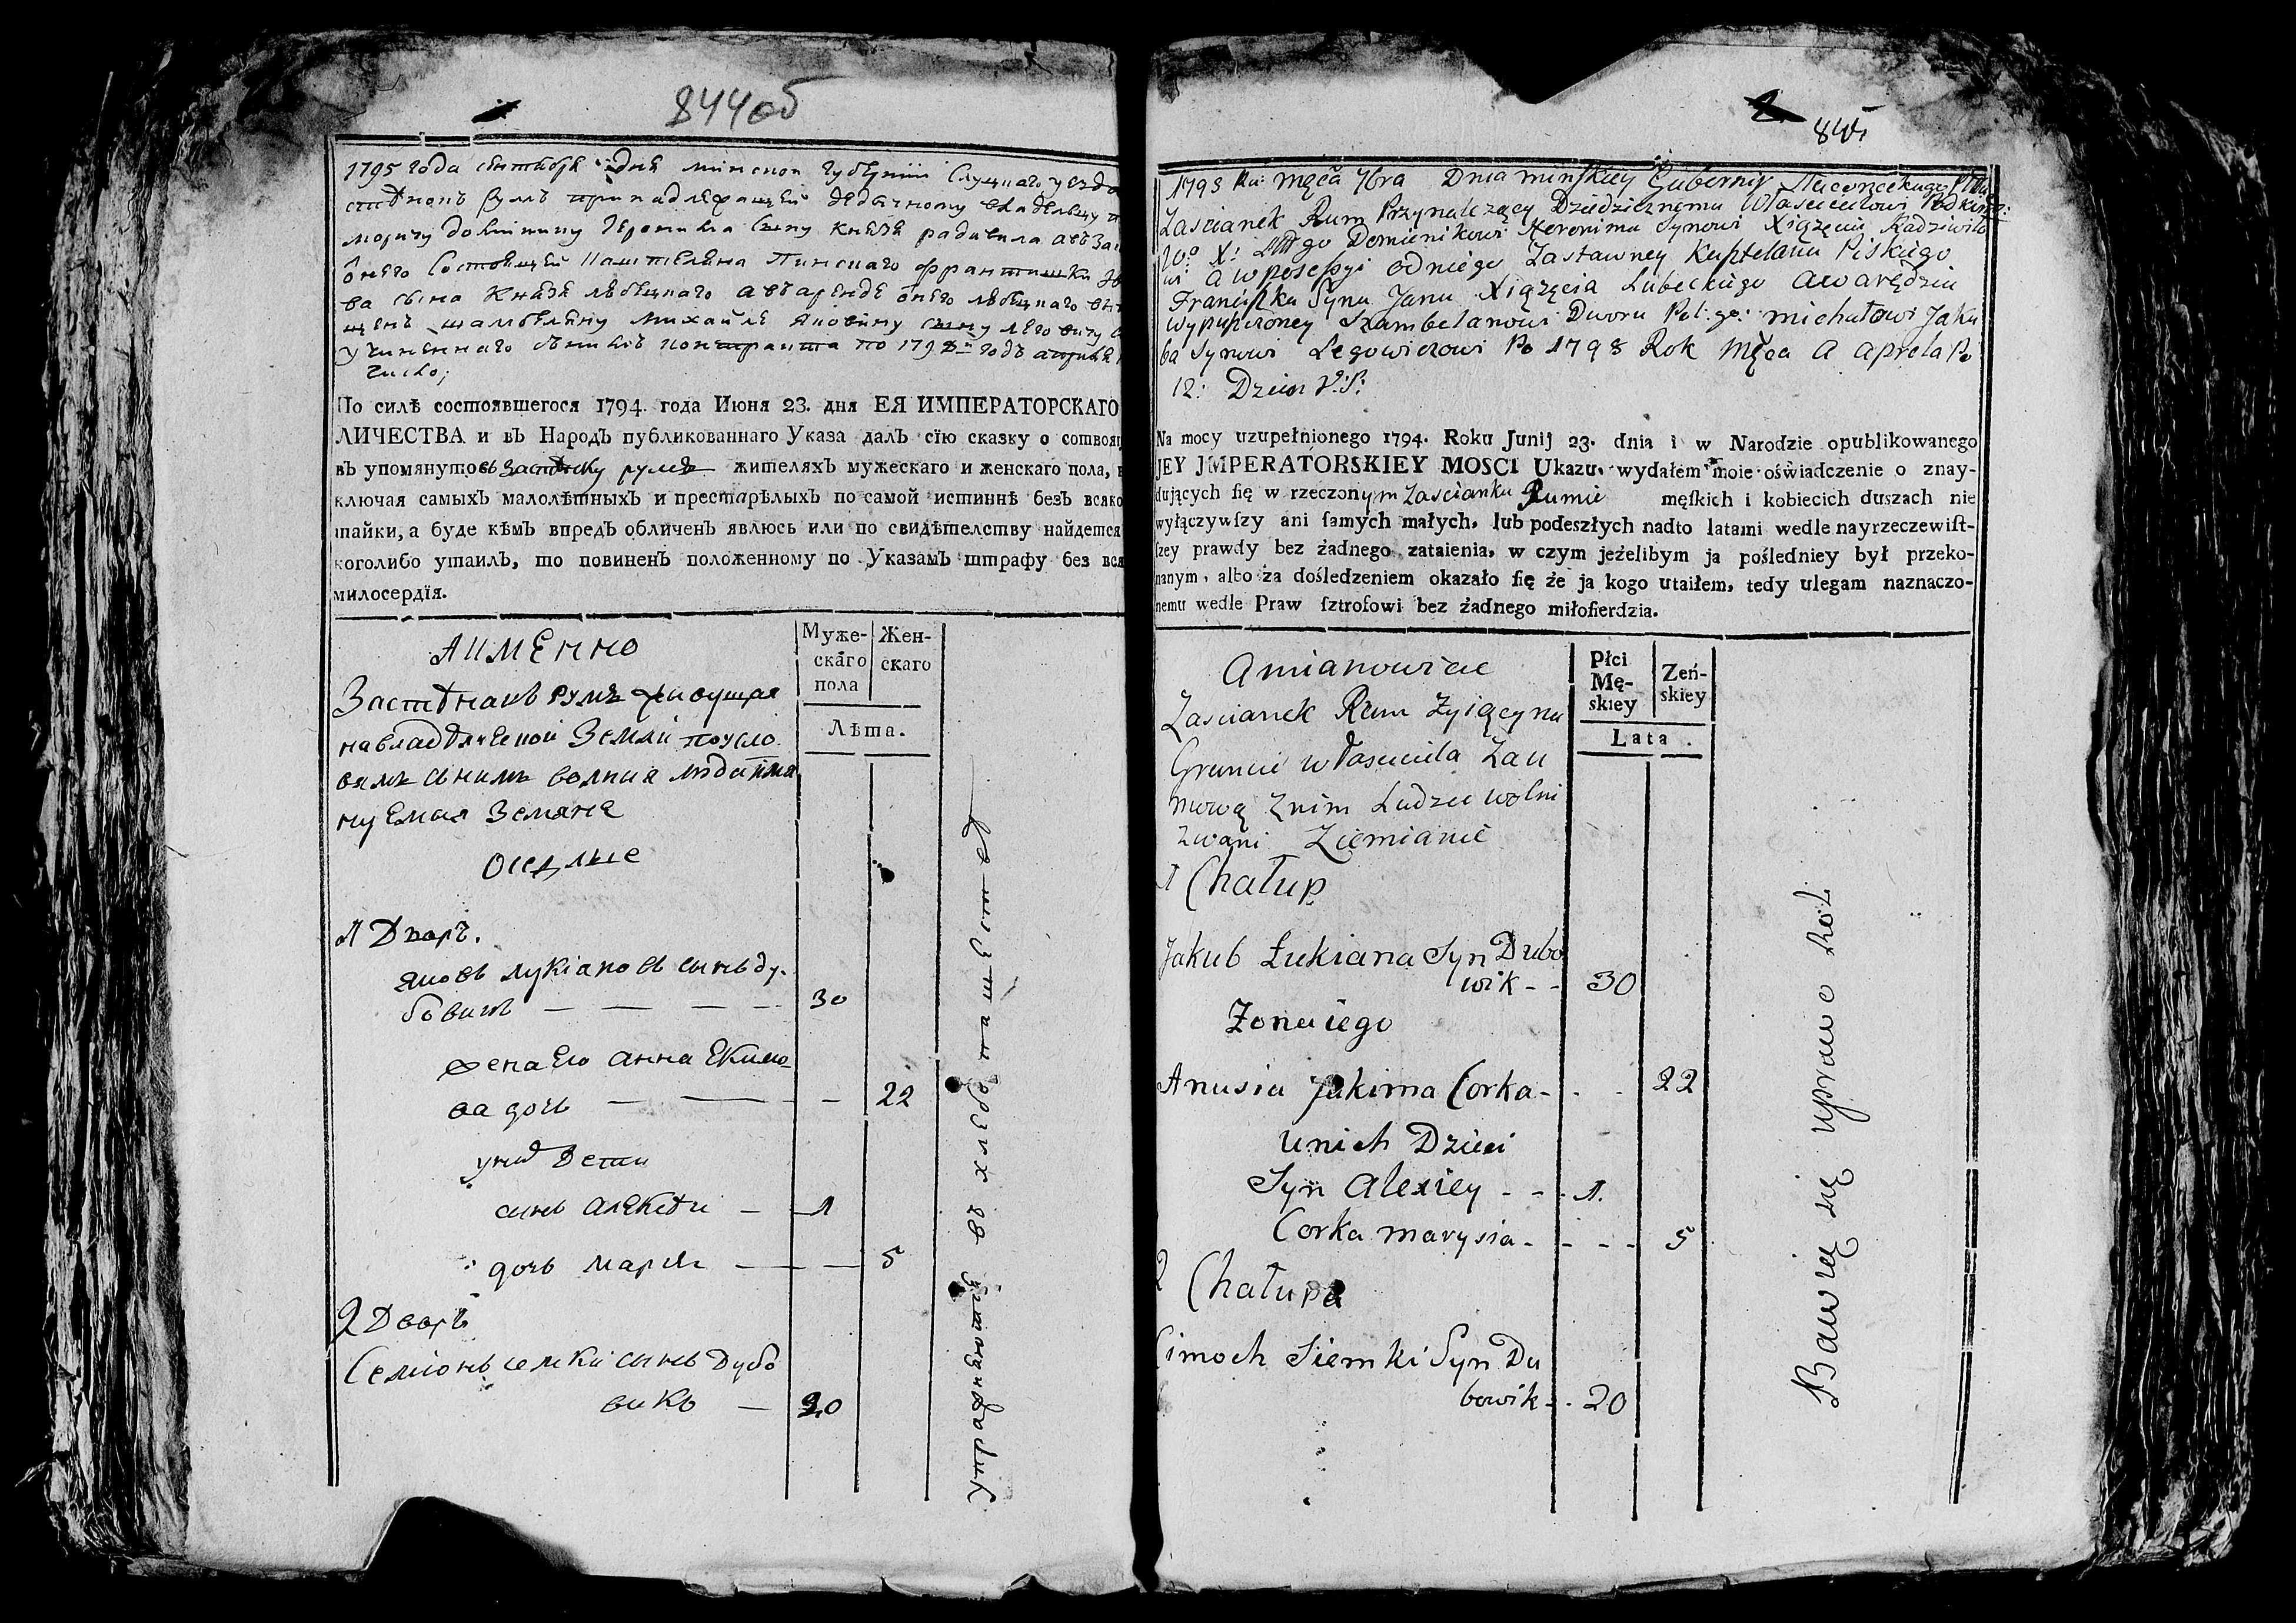 844об
1795 года сентября дня минскои губернiи Слуцкаго уезда
стенокъ румъ принадлежащей дедычному владельцу
морычу доминику Геронима сыну князя радивила авъ
онего Состоящей Каштеляна Пинскаго франтишка
ва сына Князя любецкаго авъ аренде онего любецкаго
щенъ шамбеляну михайле якову сыну
учиненнаго сънимъ контракта по 1798 годъ априля
число;
По силѣ состоявшегося 1794. года Июня 23. дня ЕЯ ИМПЕРАТОРСКАГО
ЛИЧЕСТВА и въ Народъ публикованнаго Указа далъ сїю сказку о сотвоя
въ упомянутовъ застѣнку руме жителяхъ мужескаго и женскаго пола,
ключая самыхъ малолѣтныхъ и престарѣлыхъ по самой истиннѣ безъ всяко
тайки, а буде кѣмъ впредъ обличенъ явлюсь или по свидѣтелству найдется
коголибо утаилъ, то повиненъ положенному по Указамъ штрафу без вся
милосердїя.
АИМЕННО
Муже-
скаго
пола
Жен-
скаго
Лѣта.
Застѣнакъ румъ живущая
навладѣлческой Земли поусло
виямъ снимъ волния люди има
нуемая Земяне
Оседлые
1 Дворъ.
яковъ лукiановъ сынъ ду-
бовикъ — — — — 30
жена Ево анна Екимо-
ва дочь — — — 22
унихъ дети
сынъ алексѣи — 1
дочь марья — — 5
2 Дворъ
Семiонъ семки сынъ Дубо
викъ — 20
упражняютца въ хлебопашестве
845
1795 Ru: Męca 7bra Dnia minskiey Gubernij Słuckiego Pttu
Zascianek Rum Przynależący Dziedzicznemu Własścicielowi Podkomo:
Wo X: Littgo Dominikowi Heronima Synowi Xiążęciu Radziwiło
wi a w posessyi od niego Zastawney Kasztelana Pińskiego
Franciszka Syna Jana Xiążęcia Lubeckiego a w arędzie
wypuszczoney Szambelanowi Dworu Pol:go: michałowi Jaku
ba Synowi Legowiczowi Po 1798 Rok Męca A Aprela Po
12: Dzien V:S:
Na mocy uzupełnionego 1794. Roku Junij 23. dnia i w Narodzie opublikowanego
JEY JMPERATORSKIEY MOSCI Ukazu, wydałem moie oświadczenie o znay-
dujących się w rzeczonym Zascianku Rumie męskich i kobiecich duszach nie
wyłączywszy ani samych małych, lub podeszłych nadto latami wedle nayrzeczewist-
szey prawdy bez żadnego zataienia, w czym jeżelibym ja posledniey był przeko-
nanym, albo za dośledzeniem okazało się że ja kogo utaiłem, tedy ulegam naznaczo-
nemu wedle Praw sztrofowi bez żadnego miłosierdzia.
Amianowicie
Płci
Mę-
skiey
Zeń-
skiey
Lata.
Zascianek Rum Zyiący na
Gruncie własciciela Zau
mową Znim Ludzie wolni
zwani Ziemianie
1 Chałup
Jakub Łukiana Syn Dubo
wik - - 30
Zona iego
Anusia Jakima Corka - - - 22
unich Dzieci
Syn Alexiey - - - 1.
Corka marysia - - - - 5
2 Chałupa
Cimoch Siemki Syn Du
bowik - - 20
Bawią się uprawe Roli